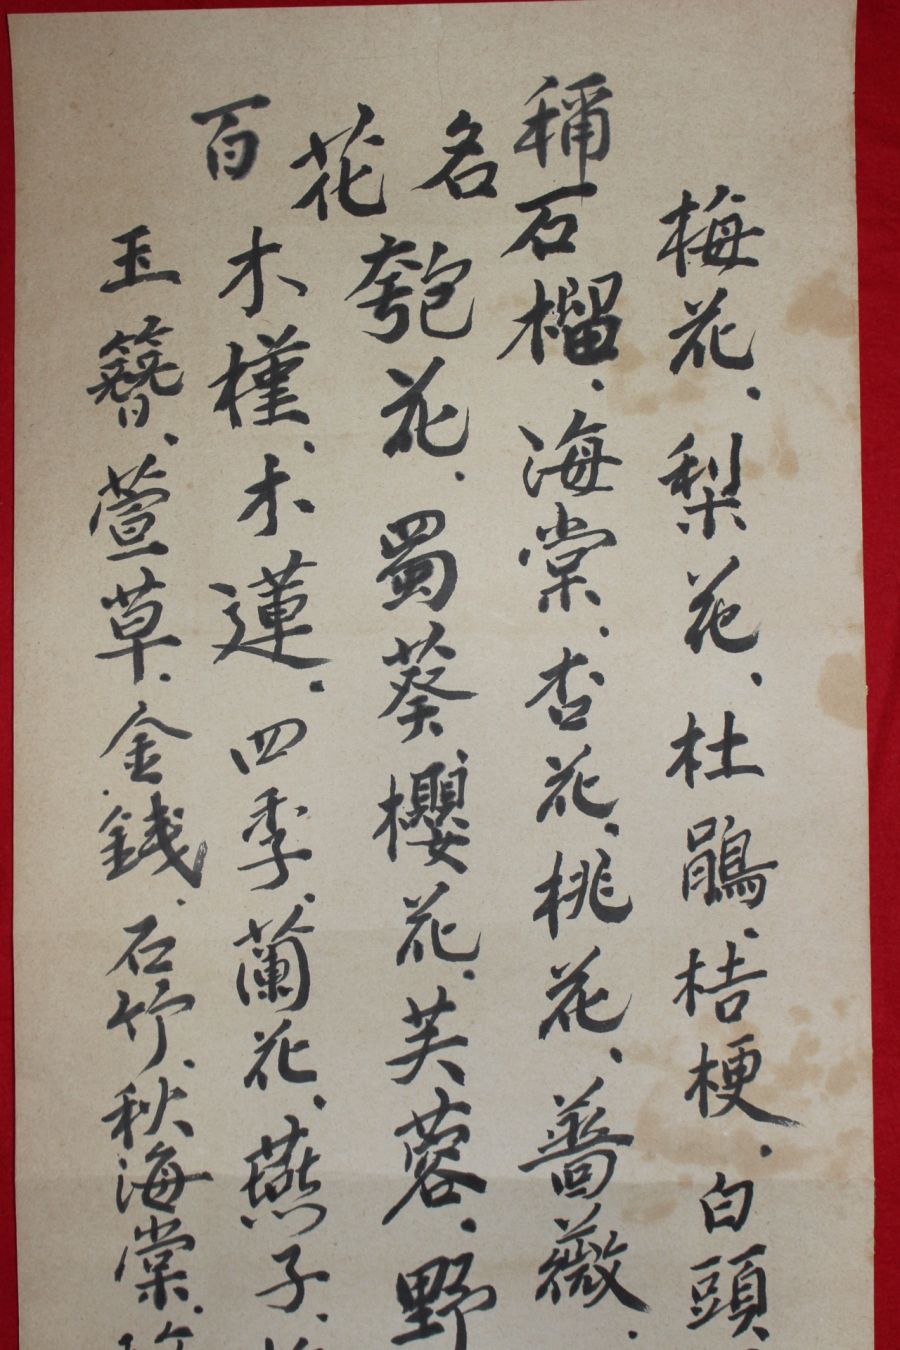 百花名稱
梅花、梨花、杜鵑、桔梗、白頭、
石榴、海棠、杏花、桃花、薔薇、
匏花、蜀葵櫻花、芙蓉、野
木槿、木蓮、四季、蘭花、燕子、
玉簪、萱草、金錢、石竹、秋海棠、